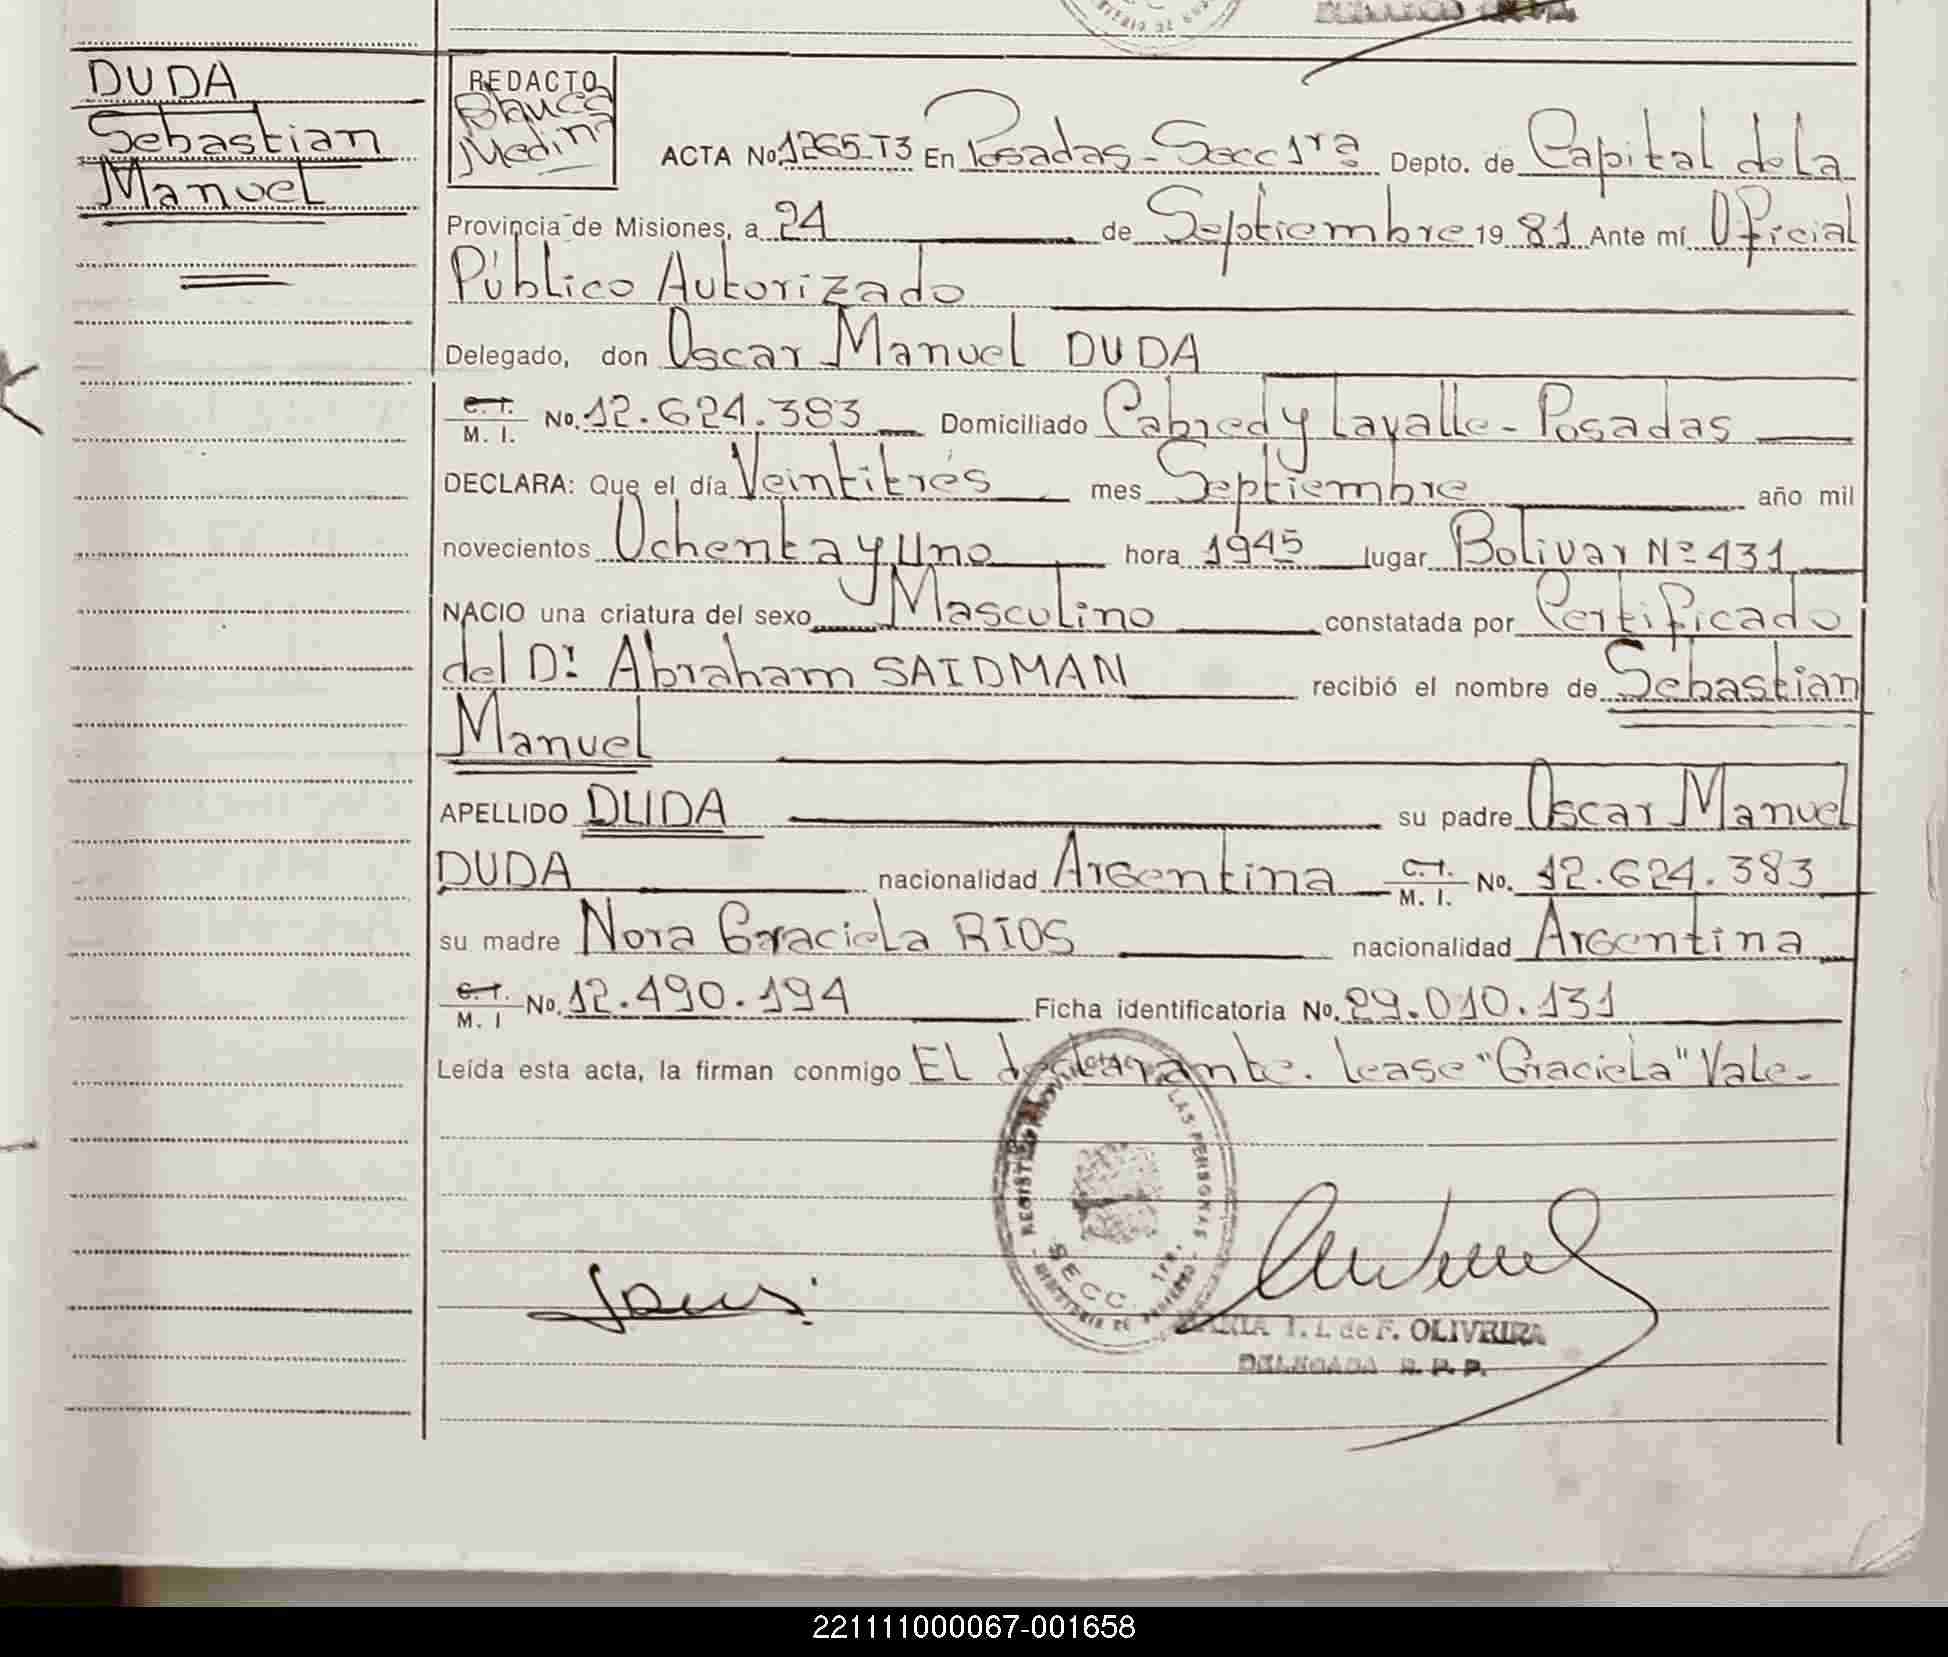 DUDA
Sebastian
Manuel
REDACTO
Blanca
Medina
ACTA No. 1265-T3 En Posadas - Secc 1ra Depto. de Capital de la
Provincia de Misiones, a 24 de Septiembre 19 81 Ante mí Oficial
Público Autorizado
Delegado, don Oscar Manuel DUDA
C. I. M. I. No. 12.624.383 Domiciliado Cabred y Lavalle - Posadas
DECLARA: Que el día Veintitrés mes Septiembre año mil
novecientos Ochenta y Uno hora 1945 lugar Bolivar Nº 431
NACIO una criatura del sexo Masculino constatada por Certificado
del Dr. Abraham SAIDMAN recibió el nombre de Sebastian
Manuel
APELLIDO DUDA su padre Oscar Manuel
DUDA nacionalidad Argentina C. I. M. I. No. 12.624.383
su madre Nora Graciela RIOS nacionalidad Argentina
C. I. M. I No. 12.490.194 Ficha identificatoria No. 29.010.131
Leída esta acta, la firman conmigo El declarante. Lease "Graciela" Vale.
REGISTRO PROVINCIAL DE LAS PERSONAS
SECC. 1ra.
MINISTERIO DE GOBIERNO
MARIA T. I. de F. OLIVEIRA
DELEGADA R. P. P.
221111000067-001658